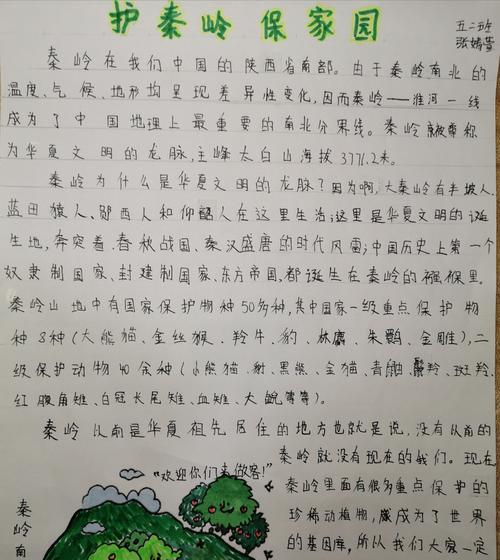 护秦岭 保家园
五二班
张婧萱
秦岭在我们中国的陕西省南部。由于秦岭南北的
温度、气候、地形均呈现差异性变化,因而秦岭——淮河一线
成为了中国地理上最重要的南北分界线。秦岭被尊称
为华夏文明的龙脉,主峰太白山海拔3771.2米。
秦岭为什么是华夏文明的龙脉?因为啊,大秦岭有半坡人、
蓝田猿人、郧西人和仰韶人在这里生活;这里是华夏文明的诞
生地,奔突着春秋战国、秦汉盛唐的时代风雷;中国历史上第一个
奴隶制国家、封建制国家、东方帝国,都诞生在秦岭的襁褓里。
秦岭山地中有国家保护物种50多种,其中国家一级重点保护物
种8种(大熊猫、金丝猴、羚牛、豹、林麝、朱鹮、金雕),二
级保护动物40余种(小熊猫、豺、黑熊、金猫、青鼬、鬣羚、斑羚、
红腹角雉、白冠长尾雉、血雉、大鲵等等)。
秦岭从前是华夏祖先居住的地方也就是说,没有从前的
秦岭就没有现在的我们。现在
“欢迎你们来做客!”
秦岭里面有很多重点保护的
珍稀动植物,成为了世界
的基因库,所以我们大家一定
秦岭南